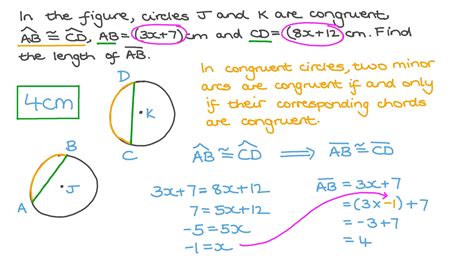 In the figure, circles J and K are congruent,
A͡B ≅ C͡D, AB= (3x+7)cm and CD= (8x+12)cm. Find
the length of A̅B̅.
In congruent circles, two minor
arcs are congruent if and only
if their corresponding chords
are congruent.
4cm
D
K
C
B
J
A
A͡B ≅ C͡D ⟹ A̅B̅ ≅ C̅D̅
3x+7 = 8x+12
7 = 5x+12
-5 = 5x
-1 = x
A̅B̅ = 3x+7
= (3×-1)+7
= -3+7
= 4